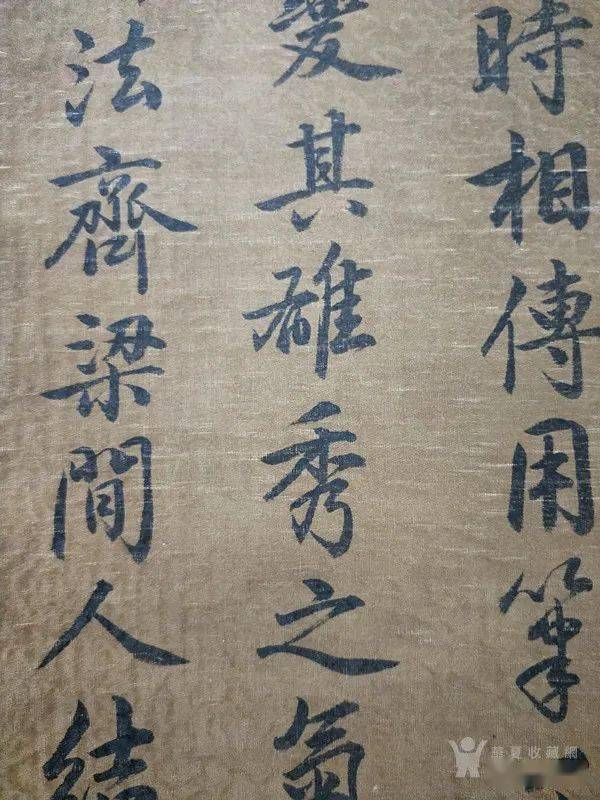 時相傳用筆
變其雄秀之氣
法齊梁間人結
華夏收藏網